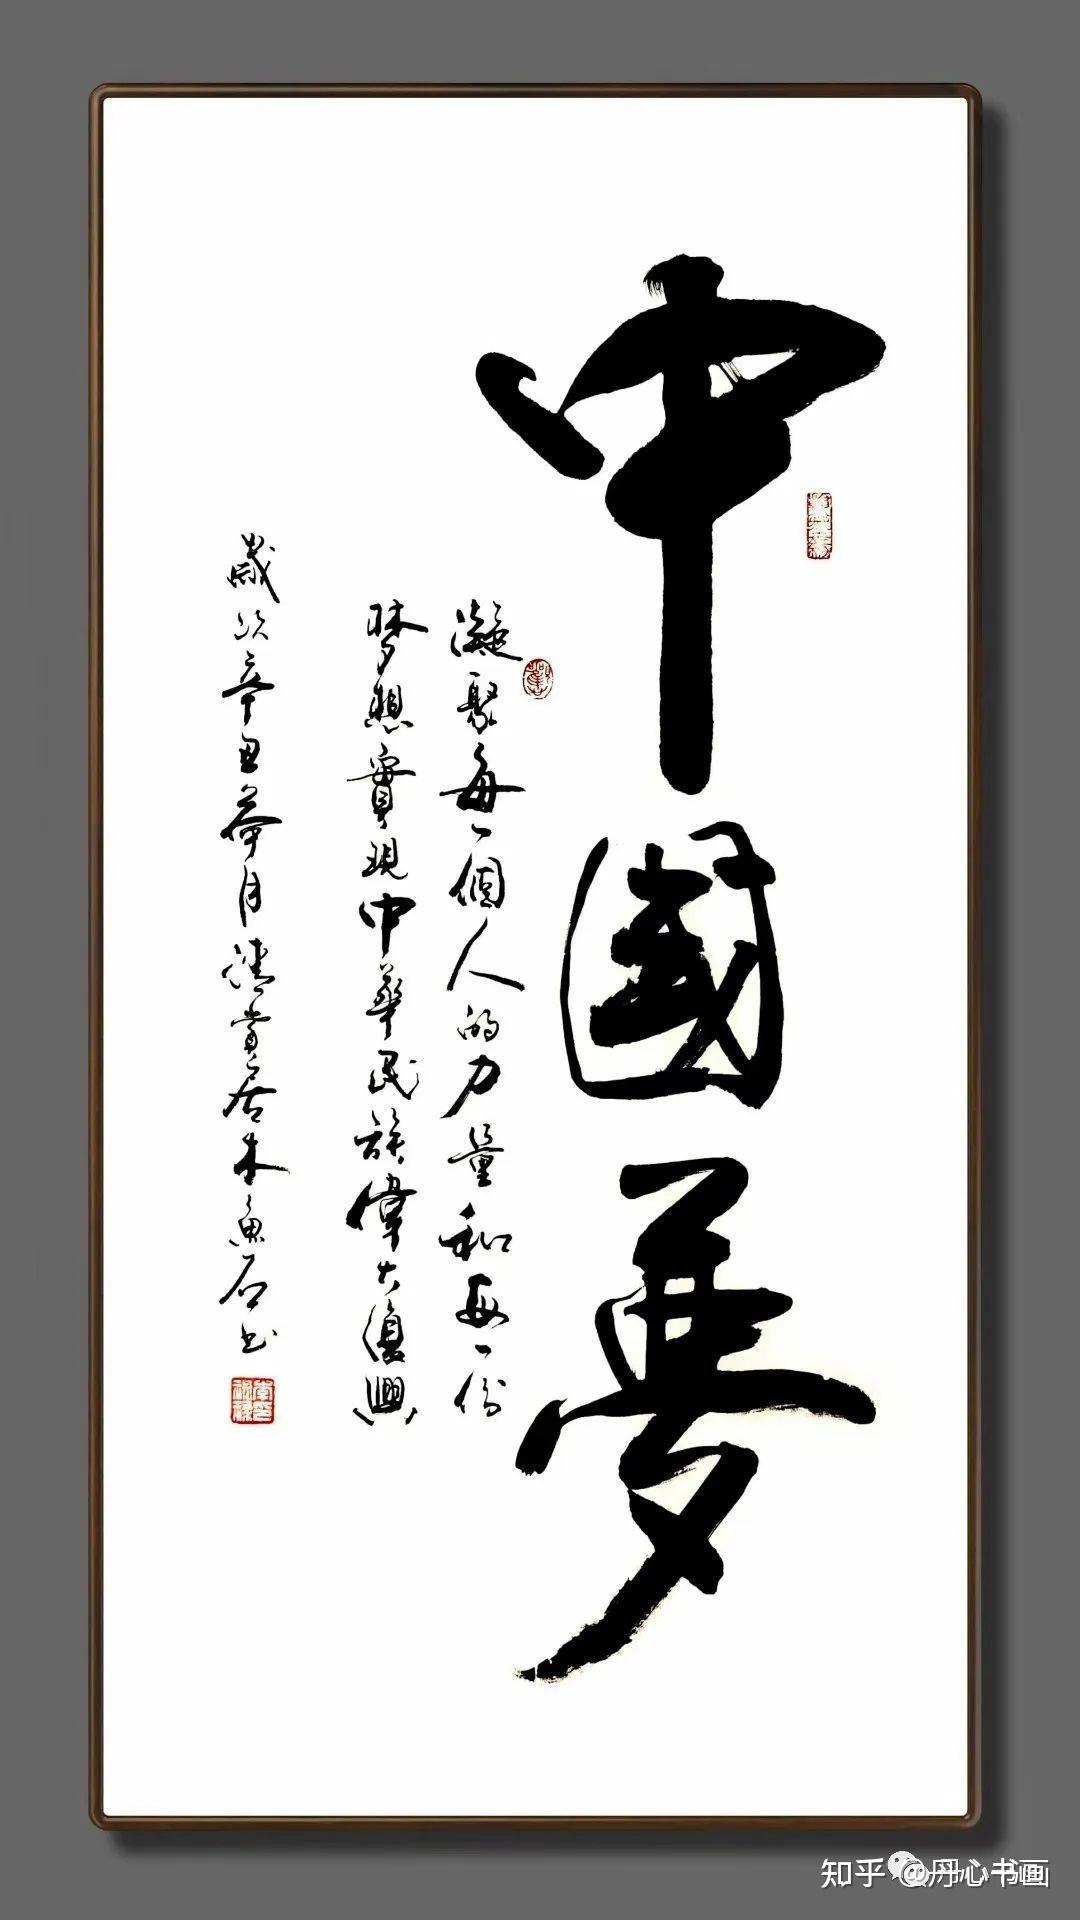 中國夢
凝聚每一個人的力量和每一份
梦想實現中華民族偉大復興
歲次辛丑荷月清賞居木魚石书
知乎 @丹心书画